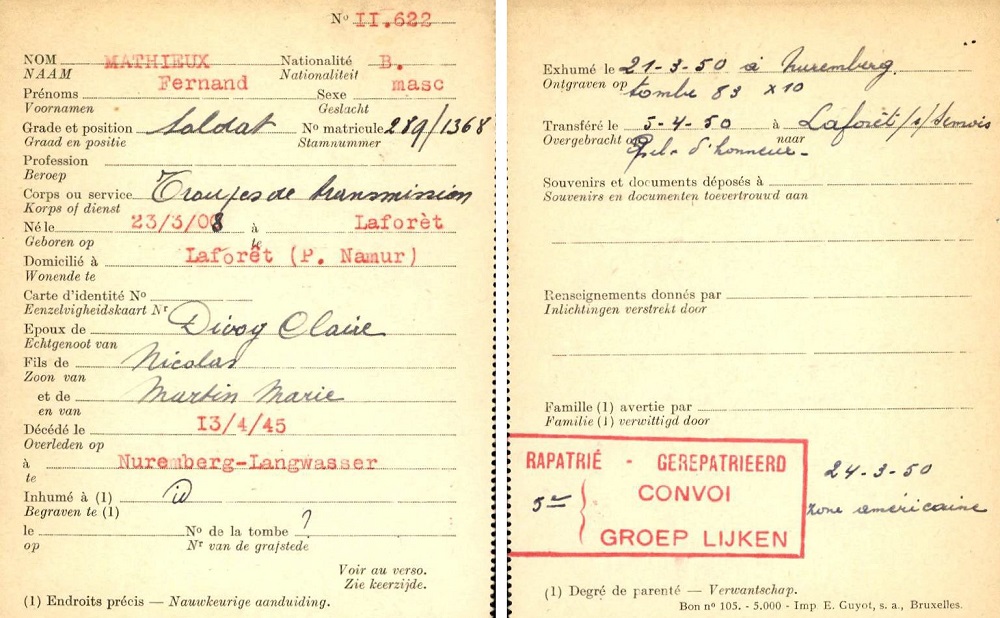 Nº II.622
NOM MATHIEUX Nationalité B.
NAAM Nationaliteit
Prénoms Fernand Sexe masc
Voornamen Geslacht
Grade et position Soldat Nº matricule 289/1368
Graad en positie Stamnummer
Profession
Beroep
Corps ou service Troupes de transmission
Korps of dienst
Né le 23/3/08 à Laforèt
Geboren op te
Domicilié à Laforêt (P. Namur)
Wonende te
Carte d'identité Nº
Eenzelvigheidskaart Nr
Epoux de Divoy Claire
Echtgenoot van
Fils de Nicolas
Zoon van
et de Martin Marie
en van
Décédé le 13/4/45
Overleden op
à Nuremberg-Langwasser
te
Inhumé à (1) id
Begraven te (1)
le Nº de la tombe ?
op Nr van de grafstede
Voir au verso.
Zie keerzijde.
(1) Endroits précis — Nauwkeurige aanduiding.
Exhumé le 21-3-50 à Nuremberg
Ontgraven op tombe 83 x10
Transféré le 5-4-50 à Laforêt/s/Semois
Overgebracht op naar
Pel. d'honneur.
Souvenirs et documents déposés à
Souvenirs en documenten toevertrouwd aan
Renseignements donnés par
Inlichtingen verstrekt door
Famille (1) avertie par
Familie (1) verwittigd door
RAPATRIÉ - GEREPATRIEERD
5e CONVOI
GROEP LIJKEN
24-3-50
zone américaine
(1) Degré de parenté — Verwantschap.
Bon nº 105. - 5.000 - Imp E. Guyot, s. a., Bruxelles.